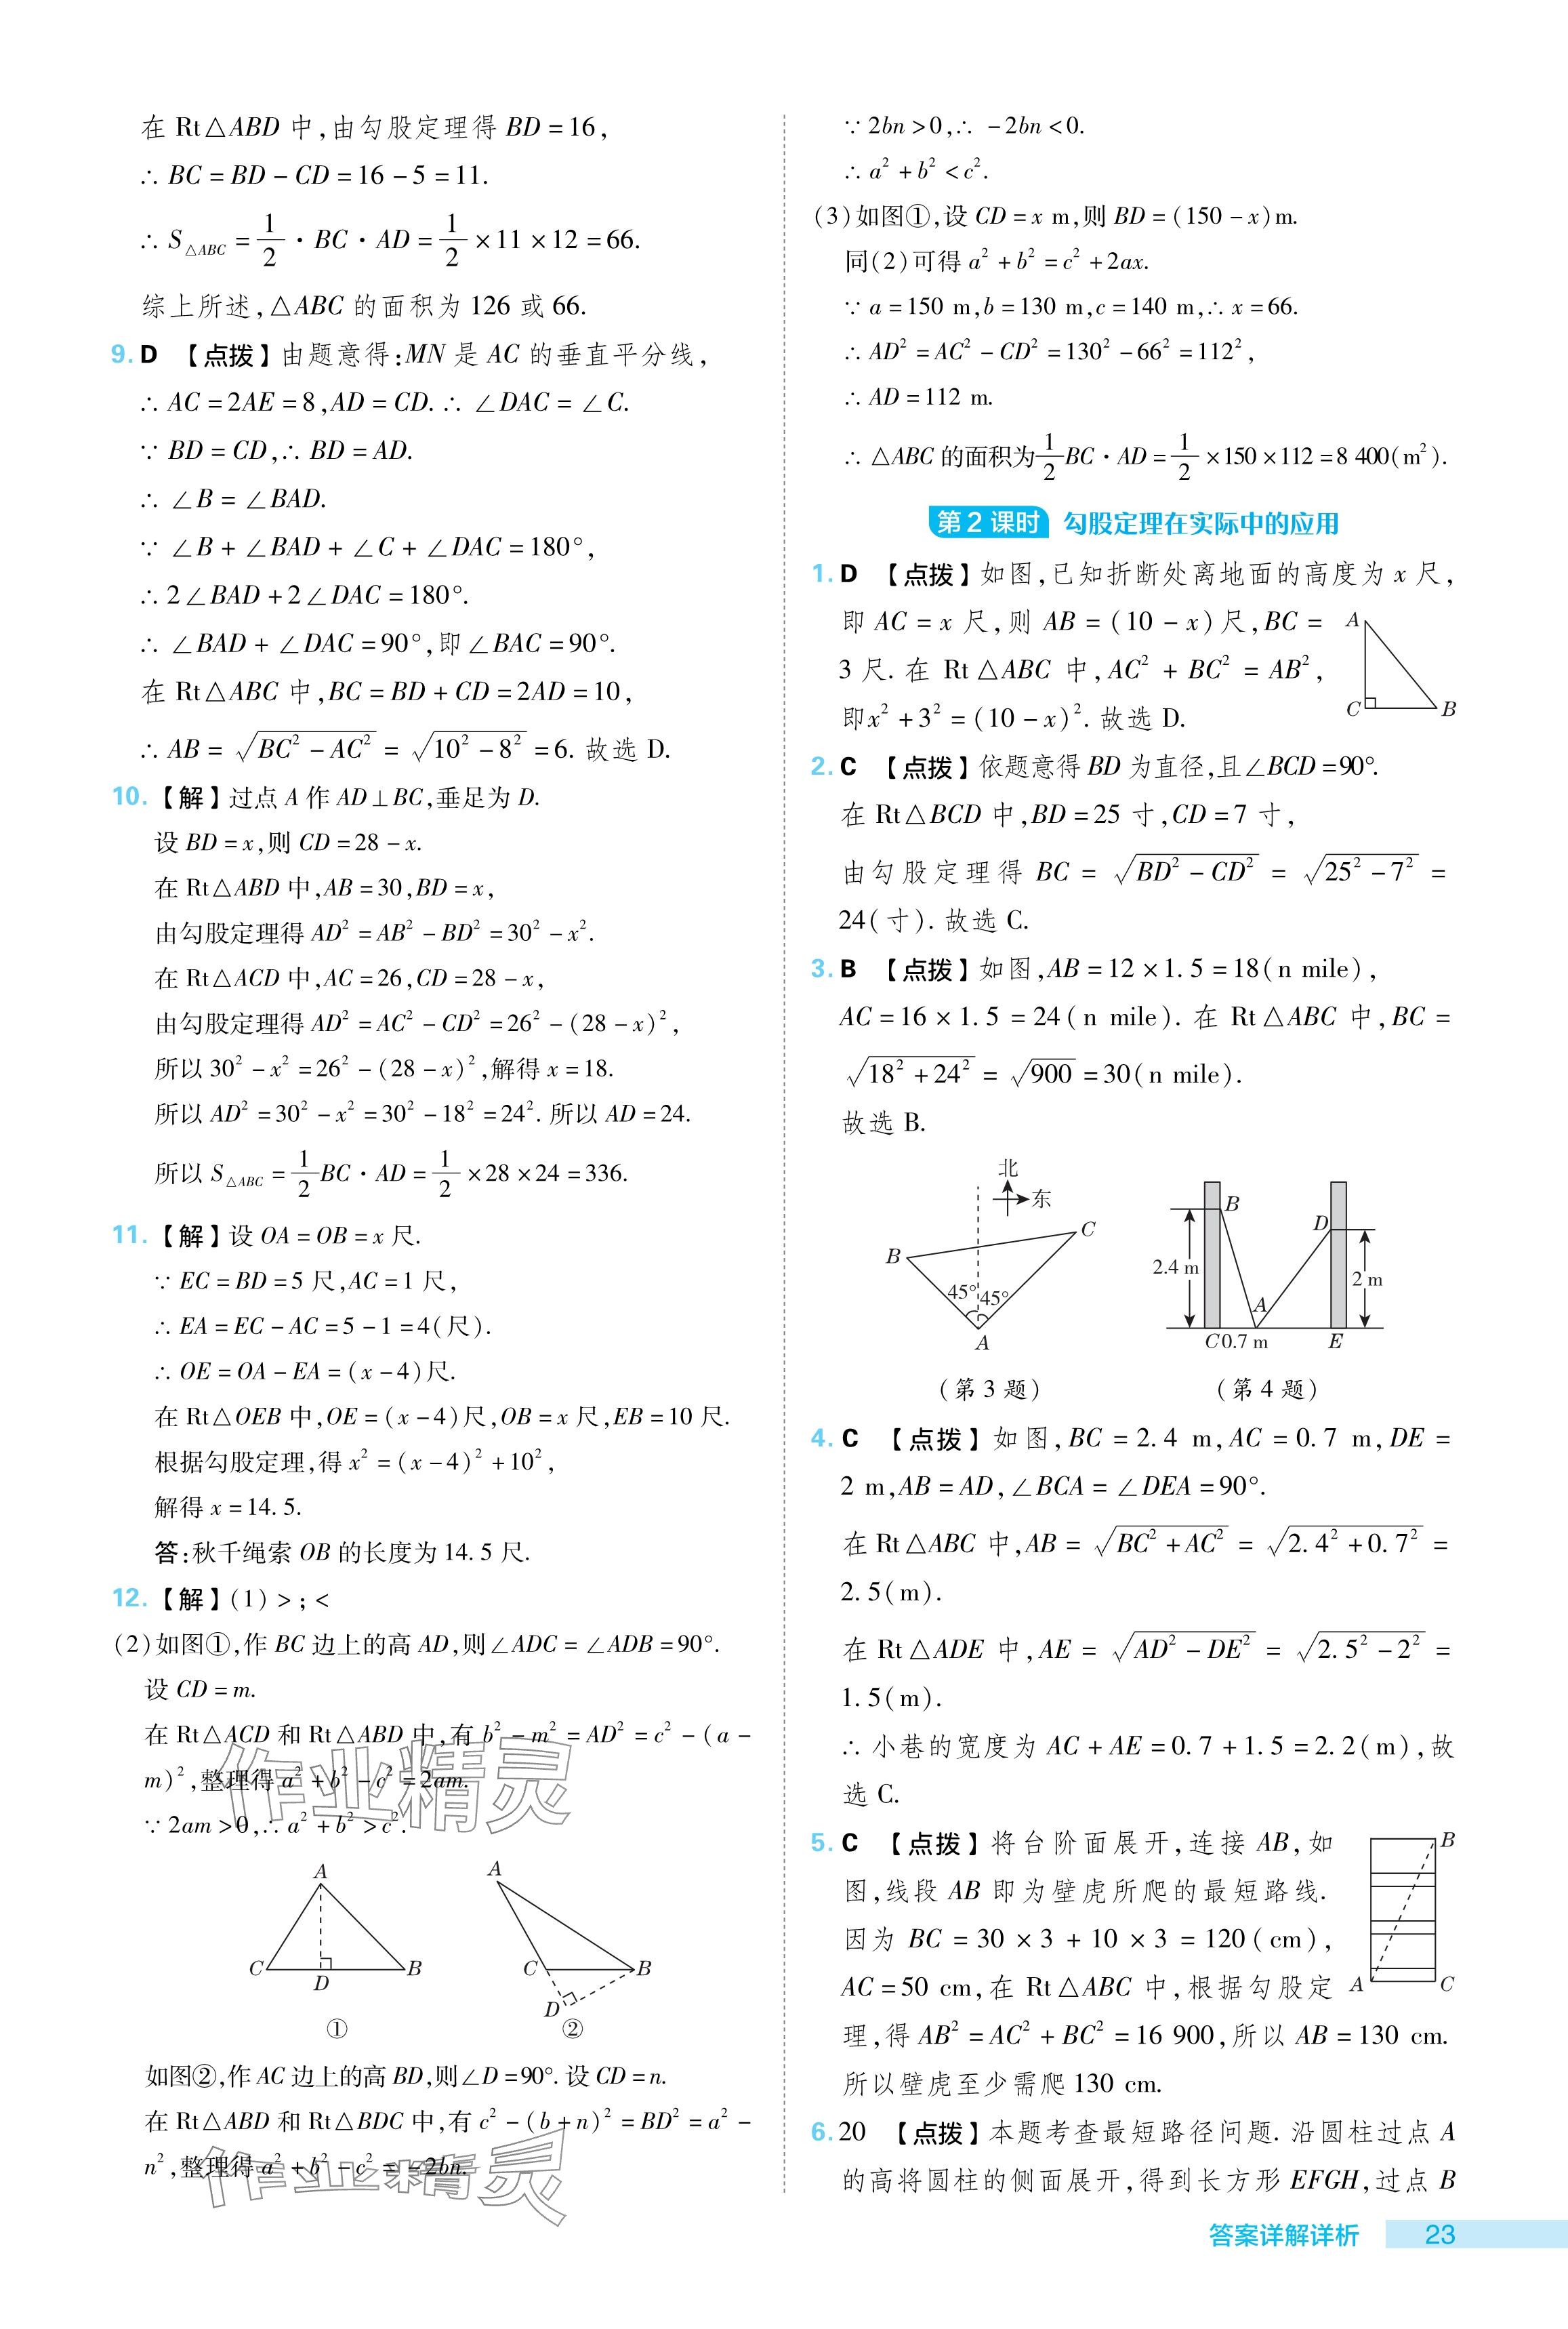 在 Rt△ABD 中,由勾股定理得 BD=16,
∴ BC=BD-CD=16-5=11.
∴ S△ABC=1/2·BC·AD=1/2×11×12=66.
综上所述,△ABC 的面积为 126 或 66.
9. D 【点拨】由题意得:MN 是 AC 的垂直平分线,
∴ AC=2AE=8,AD=CD. ∴ ∠DAC=∠C.
∵ BD=CD,∴ BD=AD.
∴ ∠B=∠BAD.
∵ ∠B+∠BAD+∠C+∠DAC=180°,
∴ 2∠BAD+2∠DAC=180°.
∴ ∠BAD+∠DAC=90°,即∠BAC=90°.
在 Rt△ABC 中,BC=BD+CD=2AD=10,
∴ AB=√(BC²-AC²)=√(10²-8²)=6. 故选 D.
10. 【解】过点 A 作 AD⊥BC,垂足为 D.
设 BD=x,则 CD=28-x.
在 Rt△ABD 中,AB=30,BD=x,
由勾股定理得 AD²=AB²-BD²=30²-x².
在 Rt△ACD 中,AC=26,CD=28-x,
由勾股定理得 AD²=AC²-CD²=26²-(28-x)²,
所以 30²-x²=26²-(28-x)²,解得 x=18.
所以 AD²=30²-x²=30²-18²=24². 所以 AD=24.
所以 S△ABC=1/2BC·AD=1/2×28×24=336.
11. 【解】设 OA=OB=x 尺.
∵ EC=BD=5 尺,AC=1 尺,
∴ EA=EC-AC=5-1=4(尺).
∴ OE=OA-EA=(x-4)尺.
在 Rt△OEB 中,OE=(x-4)尺,OB=x 尺,EB=10 尺.
根据勾股定理,得 x²=(x-4)²+10²,
解得 x=14.5.
答:秋千绳索 OB 的长度为 14.5 尺.
12. 【解】(1) > ; <
(2)如图①,作 BC 边上的高 AD,则∠ADC=∠ADB=90°.
设 CD=m.
在 Rt△ACD 和 Rt△ABD 中,有 b²-m²=AD²=c²-(a-
m)²,整理得 a²+b²-c²=2am.
∵ 2am>0,∴ a²+b²>c².
作业精灵
A
C
D
B
①
A
C
B
D
②
如图②,作 AC 边上的高 BD,则∠D=90°. 设 CD=n.
在 Rt△ABD 和 Rt△BDC 中,有 c²-(b+n)²=BD²=a²-
n²,整理得 a²+b²-c²=-2bn.
作业精灵
∵ 2bn>0,∴ -2bn<0.
∴ a²+b²<c².
(3)如图①,设 CD=x m,则 BD=(150-x)m.
同(2)可得 a²+b²=c²+2ax.
∵ a=150 m,b=130 m,c=140 m,∴ x=66.
∴ AD²=AC²-CD²=130²-66²=112²,
∴ AD=112 m.
∴ △ABC 的面积为1/2BC·AD=1/2×150×112=8 400(m²).
第 2 课时 勾股定理在实际中的应用
1. D 【点拨】如图,已知折断处离地面的高度为 x 尺,
即 AC=x 尺,则 AB=(10-x)尺,BC=
3 尺. 在 Rt△ABC 中,AC²+BC²=AB²,
即x²+3²=(10-x)². 故选 D.
A
C
B
2. C 【点拨】依题意得 BD 为直径,且∠BCD=90°.
在 Rt△BCD 中,BD=25 寸,CD=7 寸,
由勾股定理得 BC=√(BD²-CD²)=√(25²-7²)=
24(寸). 故选 C.
3. B 【点拨】如图,AB=12×1.5=18(n mile),
AC=16×1.5=24(n mile). 在 Rt△ABC 中,BC=
√(18²+24²)=√900=30(n mile).
故选 B.
北
东
B
C
45°
45°
A
(第 3 题)
B
D
2.4 m
2 m
A
C
0.7 m
E
(第 4 题)
4. C 【点拨】如图,BC=2.4 m,AC=0.7 m,DE=
2 m,AB=AD,∠BCA=∠DEA=90°.
在 Rt△ABC 中,AB=√(BC²+AC²)=√(2.4²+0.7²)=
2.5(m).
在 Rt△ADE 中,AE=√(AD²-DE²)=√(2.5²-2²)=
1.5(m).
∴ 小巷的宽度为 AC+AE=0.7+1.5=2.2(m),故
选 C.
5. C 【点拨】将台阶面展开,连接 AB,如
图,线段 AB 即为壁虎所爬的最短路线.
因为 BC=30×3+10×3=120(cm),
AC=50 cm,在 Rt△ABC 中,根据勾股定
理,得 AB²=AC²+BC²=16 900,所以 AB=130 cm.
所以壁虎至少需爬 130 cm.
B
A
C
6. 20 【点拨】本题考查最短路径问题. 沿圆柱过点 A
的高将圆柱的侧面展开,得到长方形 EFGH,过点 B
答案详解详析 23